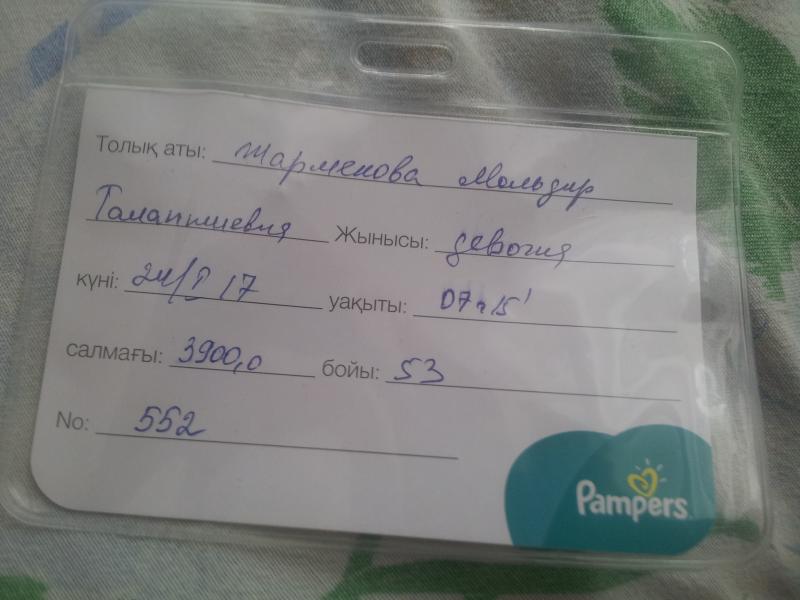 Толық аты: Жарменова Мольдир
Талапкиевна Жынысы: девочка
күні: 24/I 17 уақыты: 07ч15'
салмағы: 3900,0 бойы: 53
No: 552
Pampers